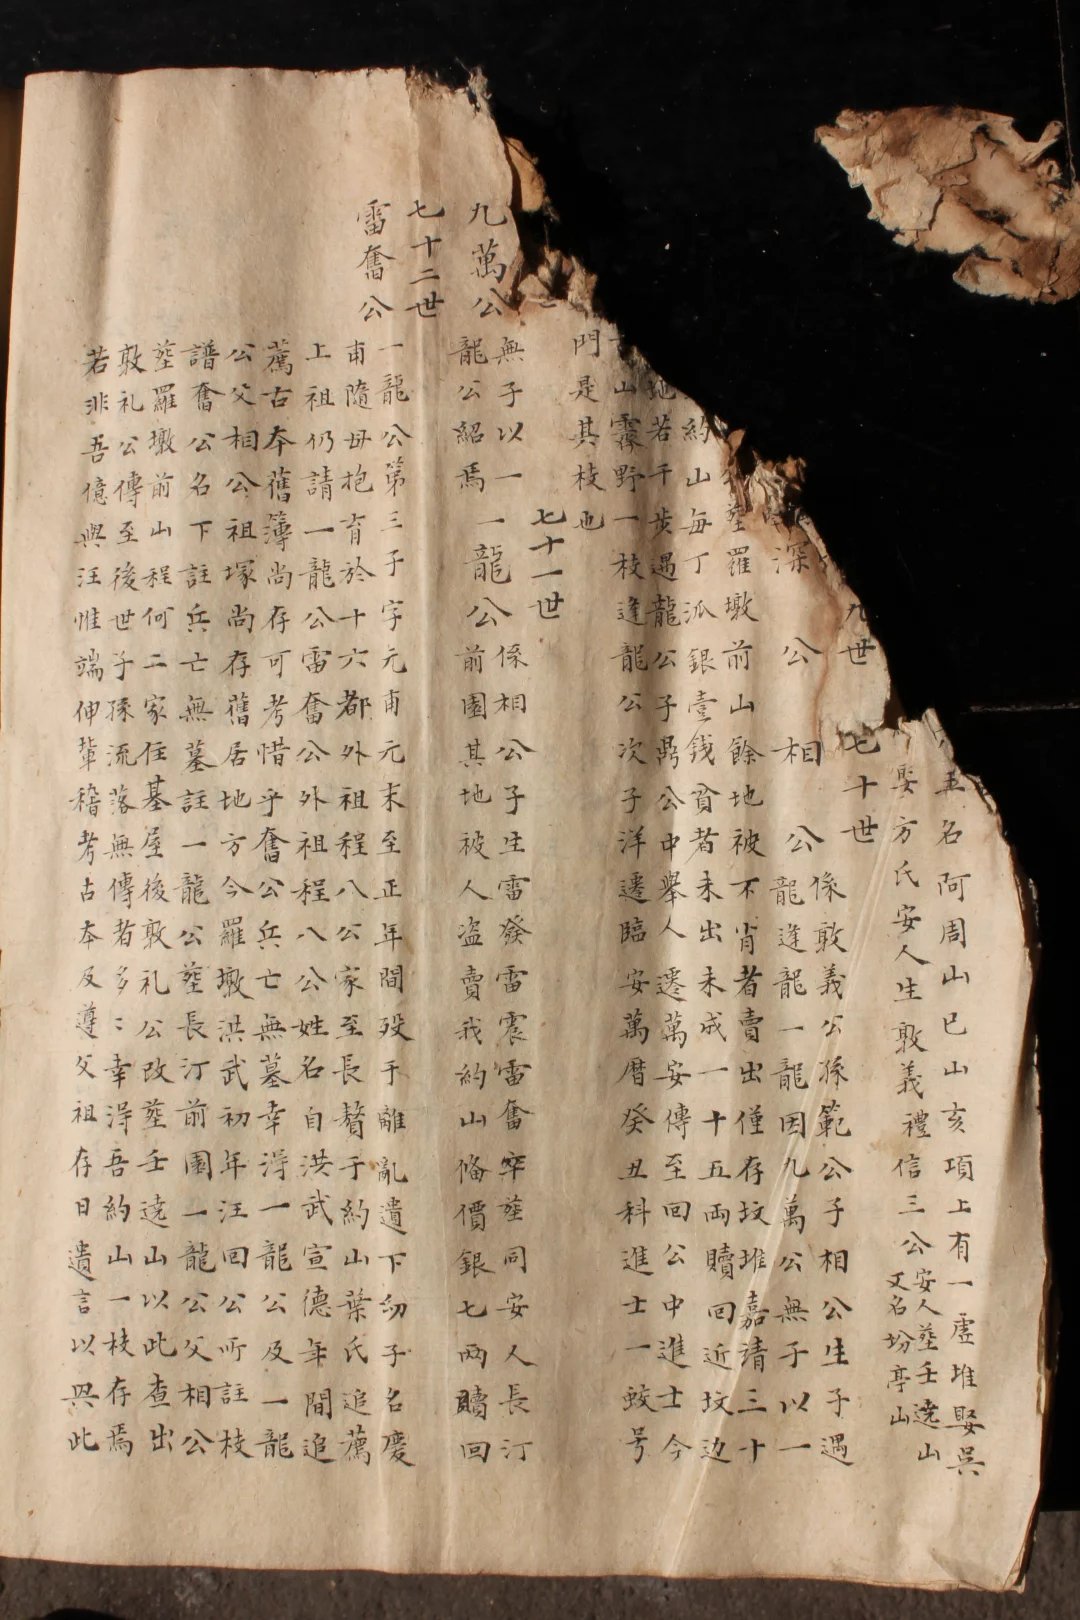 五名阿周山巳山亥項上有一虛堆娶吳
娶方氏安人生敦義禮信三公安人塟壬遶山
又名坋亭山
九世
七十世
深公
相公
係敢義公孫範公子相公生子遇
龍逢龍一龍因九萬公無子以一
塟羅墩前山餘地被不肖者賣出僅存坟堆嘉靖三十
約山每丁派銀壹銭貧者未出未成一十五両贖回近坟边
地若干步遇龍公子鼎公中舉人遷萬安傳至回公中進士今
山霧野一枝逢龍公次子洋遷臨安萬曆癸丑科進士一蛟号
門是其枝也
七十一世
九萬公
無子以一
龍公紹焉
一龍公
係相公子生雷發雷震雷奮卒塟同安人長汀
前園其地被人盗賣我約山俻價銀七两贖回
七十二世
雷奮公
一龍公第三子字元甫元末至正年間殁于離亂遺下幼子名慶
甫隨母抱育於十六都外祖程八公家至長贅于約山葉氏追薦
上祖仍請一龍公雷奮公外祖程八公姓名自洪武宣德年間追
薦古本舊簿尚存可考惜乎奮公兵亡無墓幸淂一龍公及一龍
公父相公祖塚尚存舊居地方今羅墩洪武初年汪回公所註枝
譜奮公名下註兵亡無墓註一龍公塟長汀前園一龍公父相公
塟羅墩前山程何二家住基屋後敦礼公改塟壬遶山以此查出
敦礼公傳至後世子孫流落無傳者多〻幸淂吾約山一枝存焉
若非吾億與汪惟端伸輩稽考古本及遵父祖存日遺言以與此